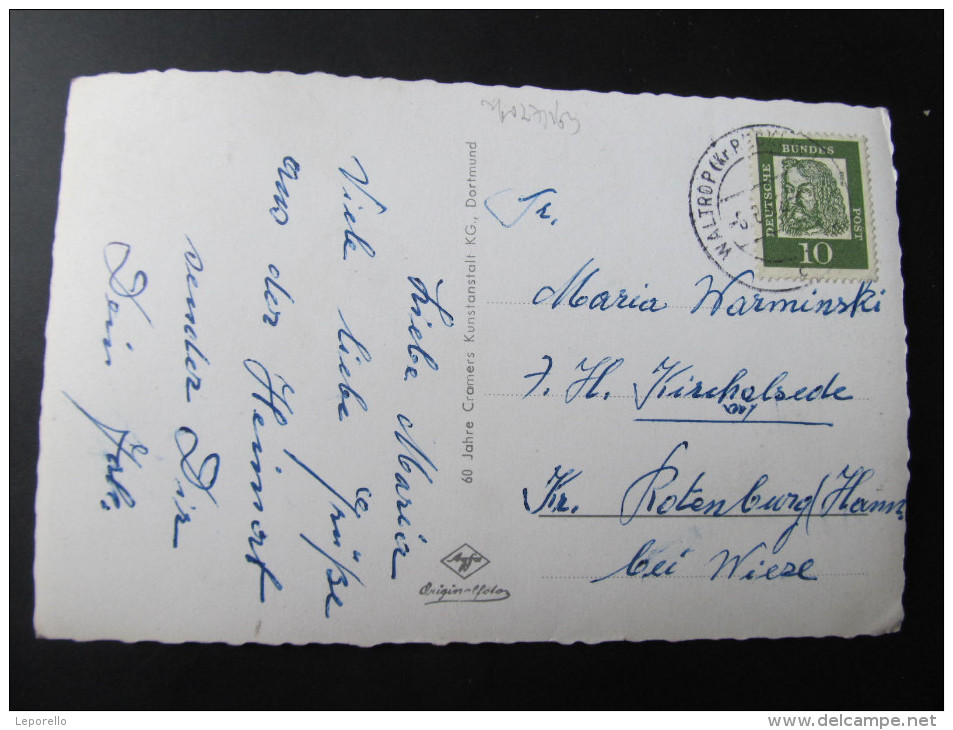 Liebe Maria
Viele liebe Grüße
aus der Heimat
sendet Dir
Dein
60 Jahre Cramers Kunstanstalt KG., Dortmund
Agfa
Originalfoto
WALTROP (Kr
DEUTSCHE
BUNDES
POST
10
Fr.
Maria Warminski
Kirchalsede
Kr. Rotenburg/Hann
bei Wieze
Leporello
www.delcampe.net